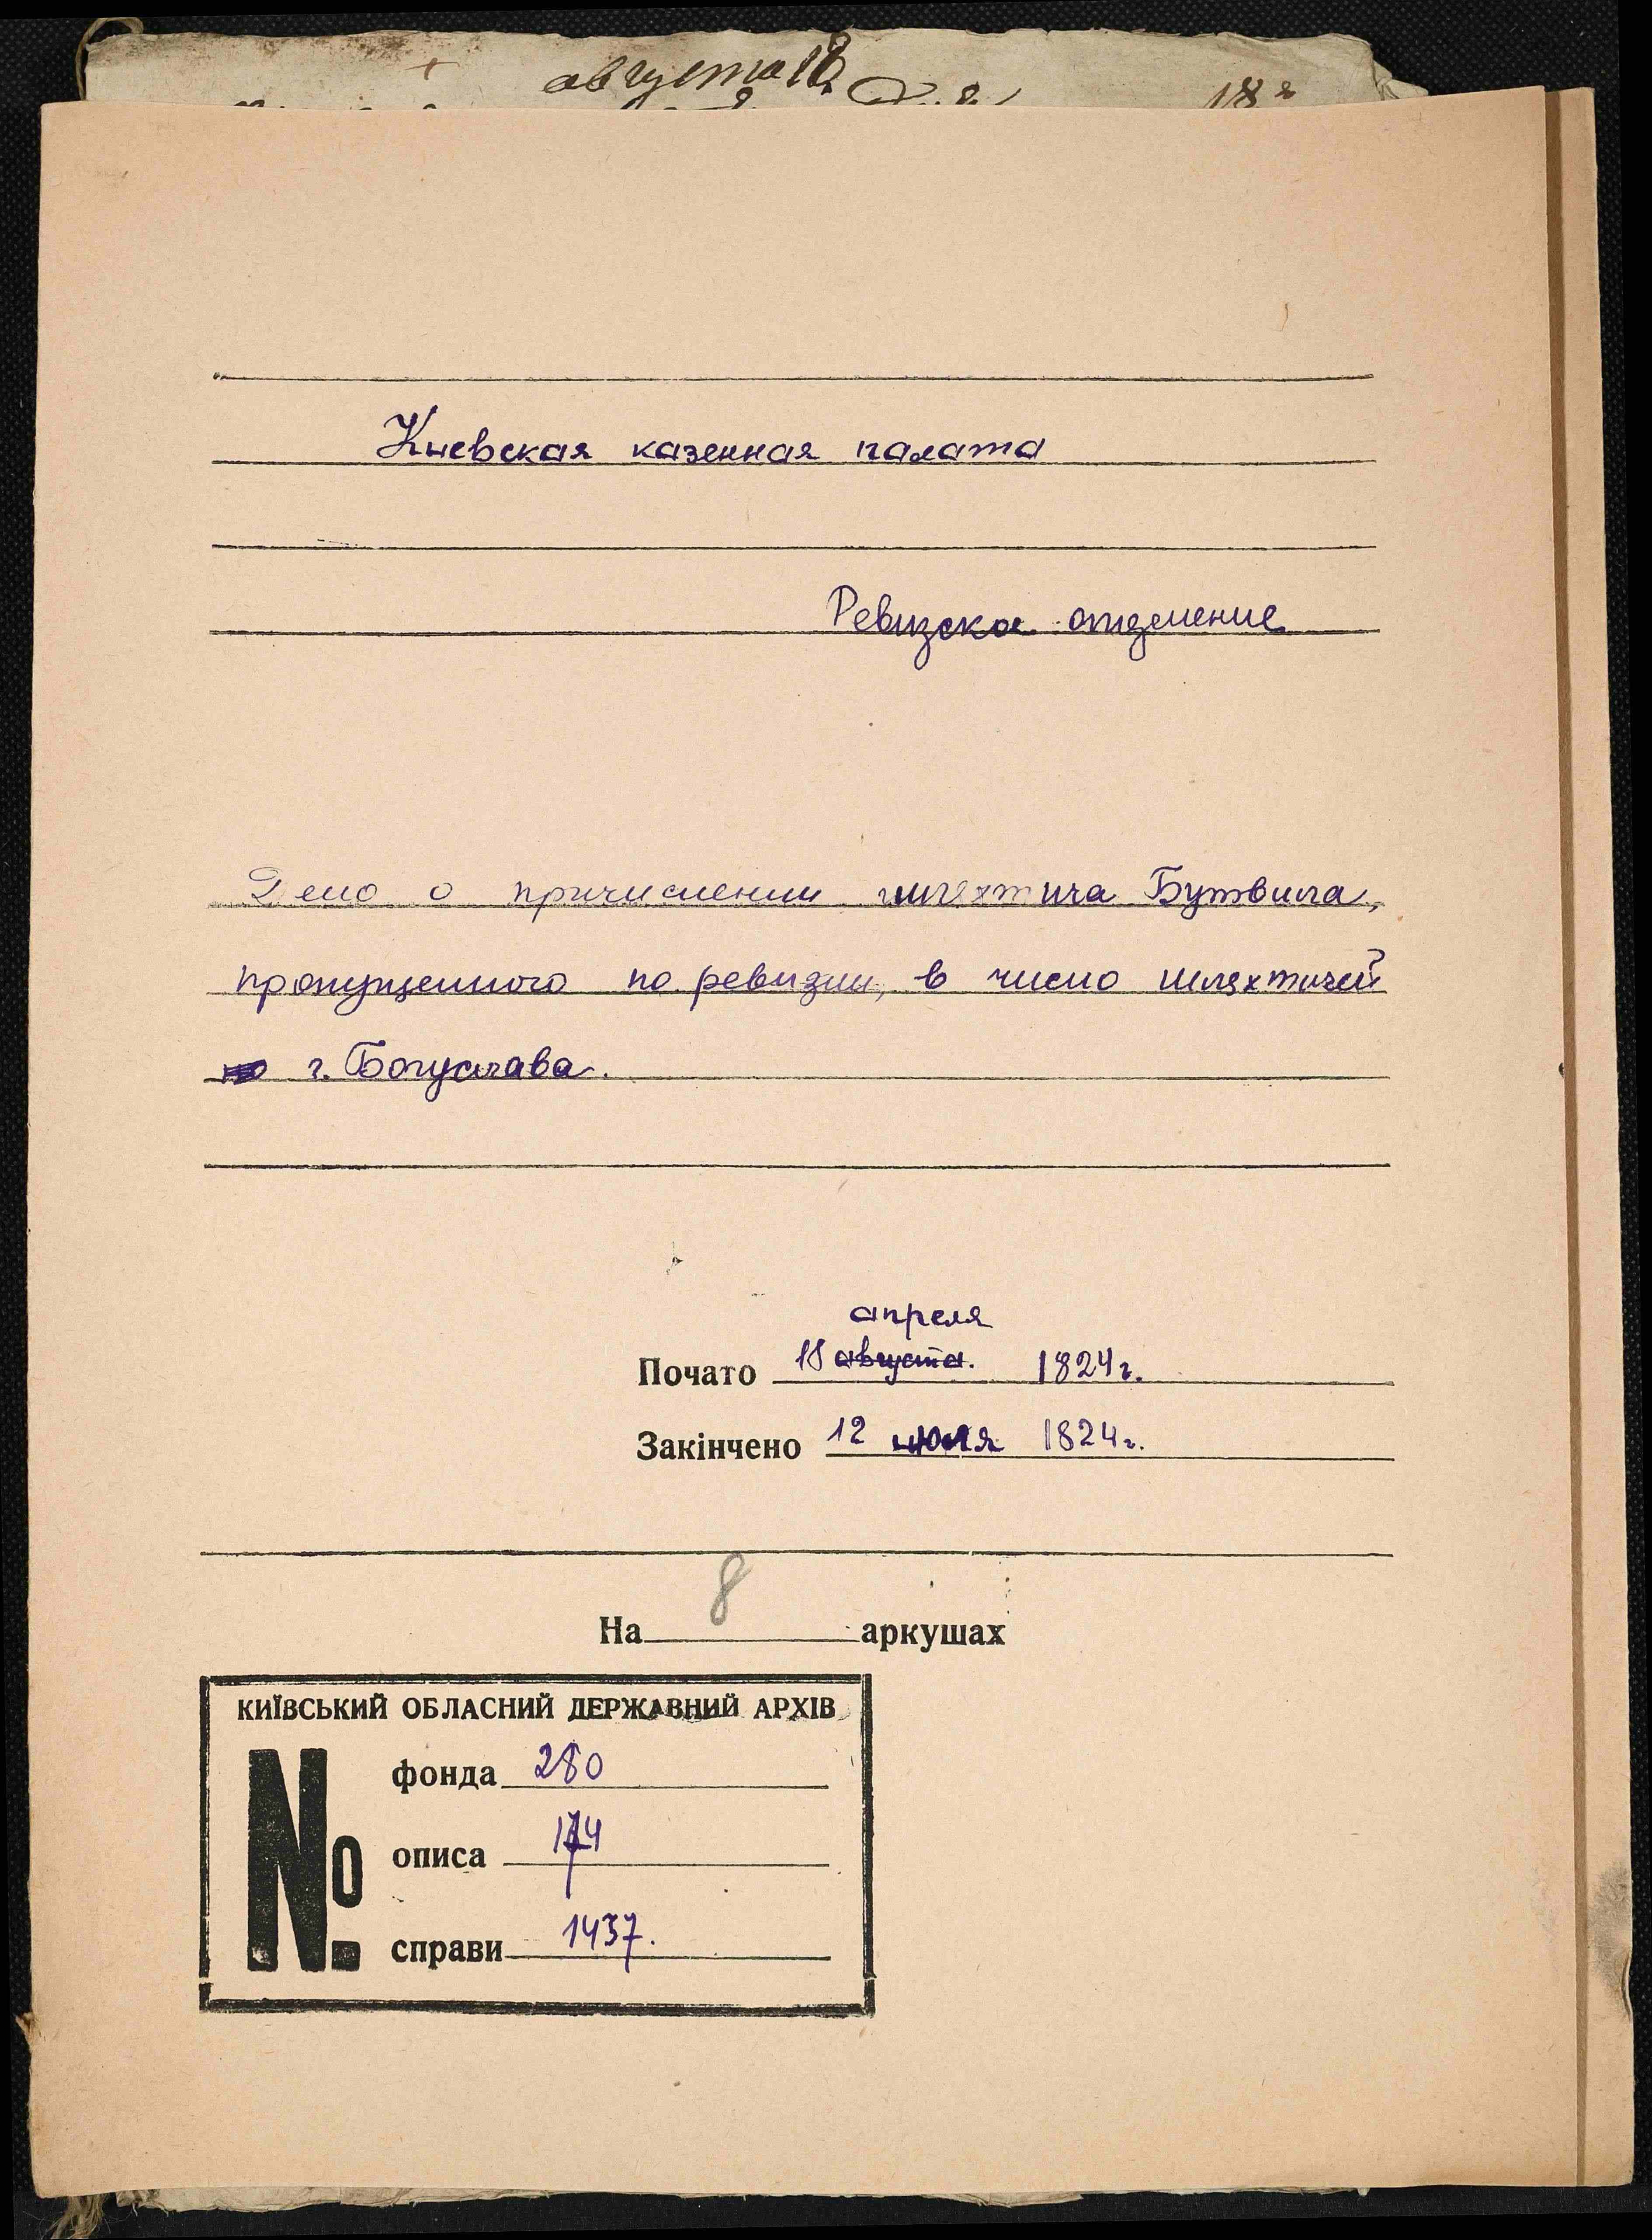 августа 18
Киевская казенная палата
Ревизское отделение
Дело о причислении шляхтича Бутвила,
пропущенного по ревизии, в число шляхтичей
г. Богуслава.
апреля
Почато 18 августа. 1824 г.
Закінчено 12 июля 1824 г.
На 8 аркушах
КИЇВСЬКИЙ ОБЛАСНИЙ ДЕРЖАВНИЙ АРХІВ
№
фонда 280
описа 174
справи 1437.